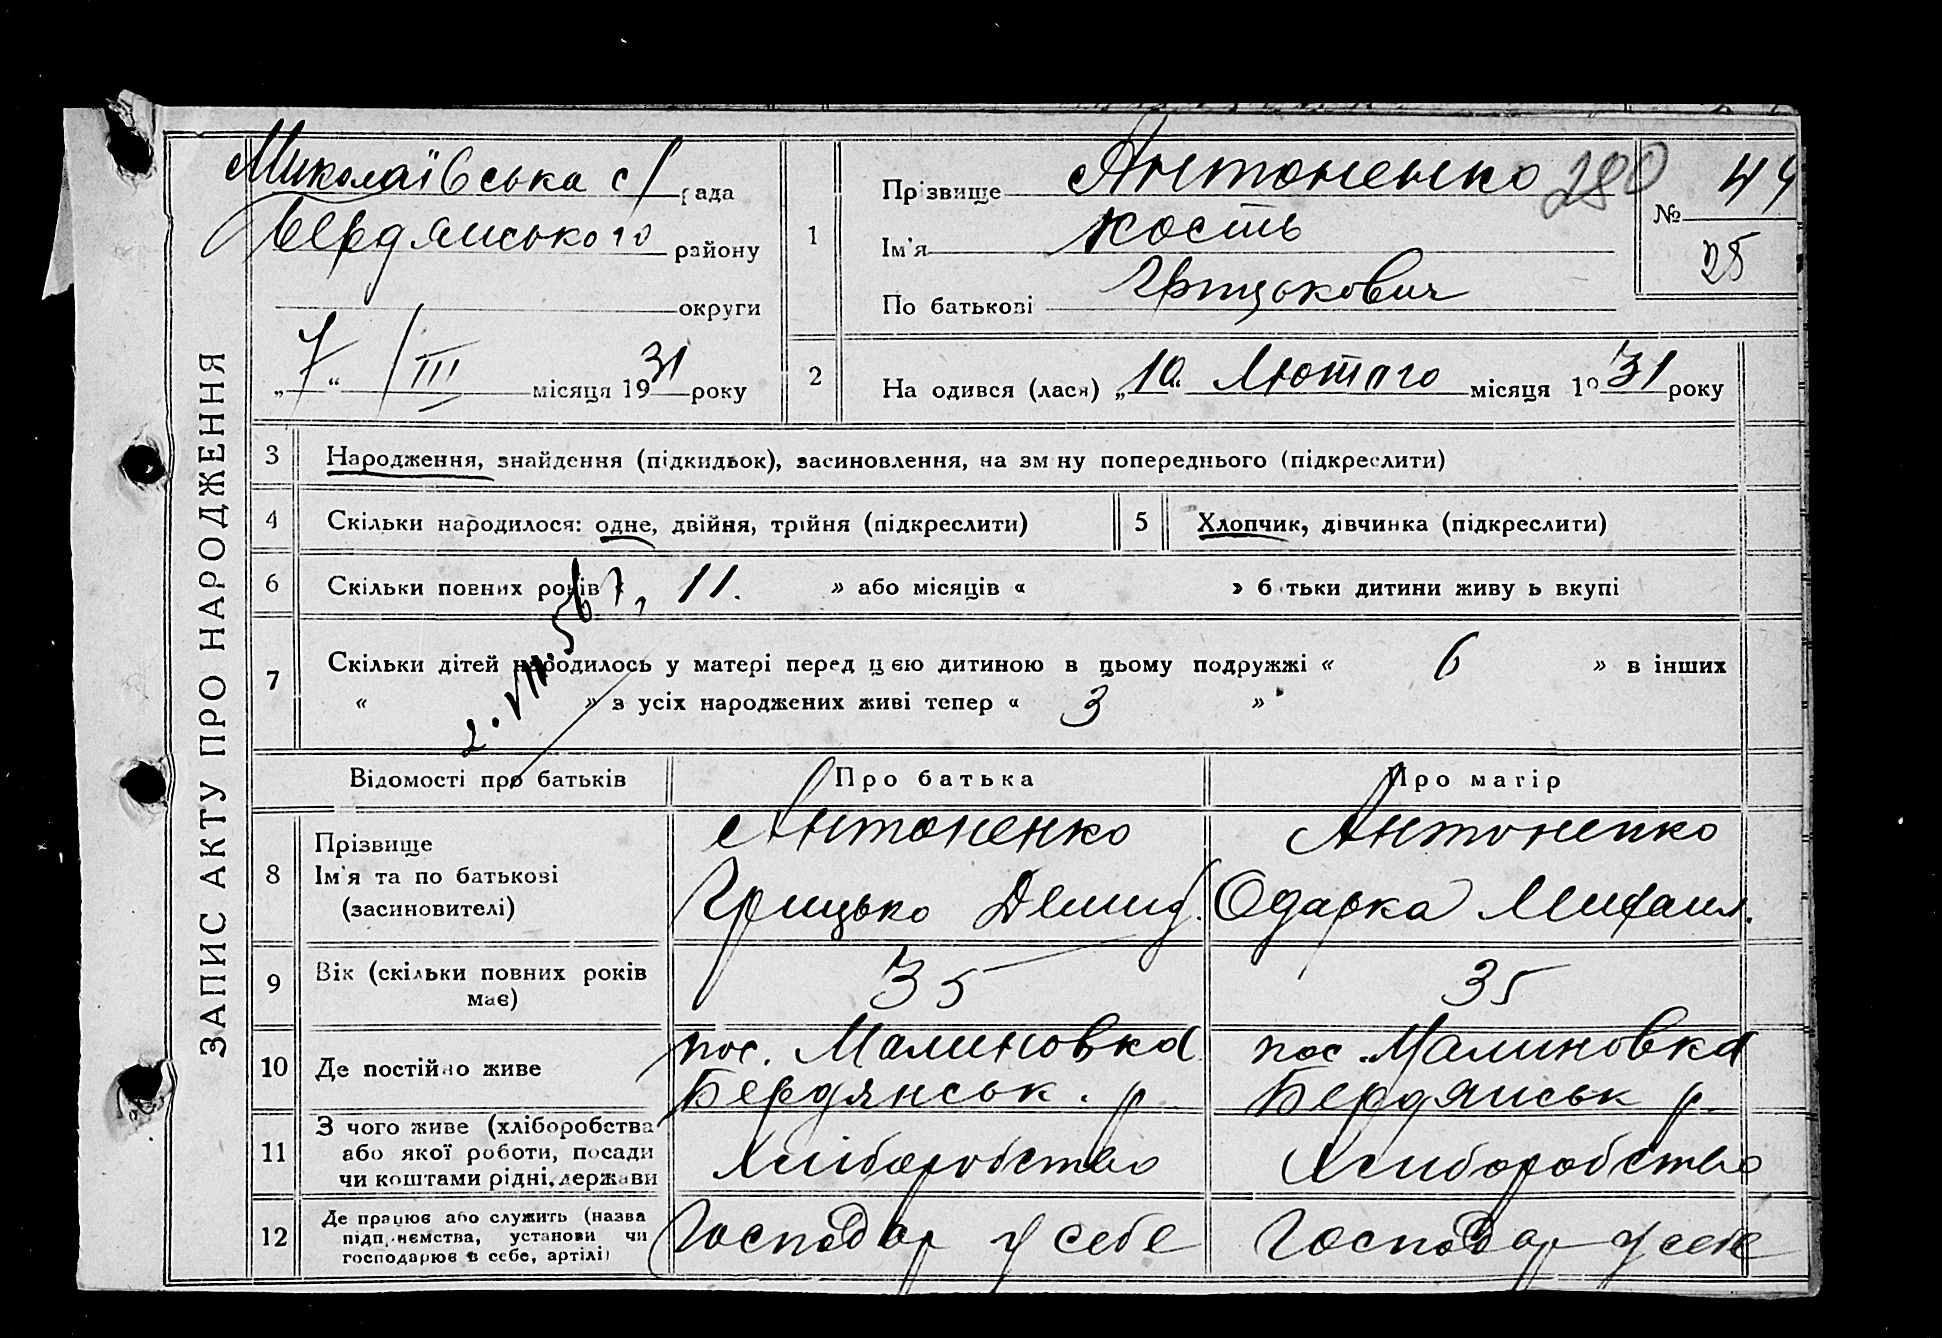 ЗАПИС АКТУ ПРО НАРОДЖЕННЯ
Миколаївська с/рада
Бердянського району
округи
„7“ / III місяця 1931 року
1
Прізвище Антоненко 280
Ім'я Кость
По батькові Грицькович
№ 44
25
2
На одився (лася) „10. Лютого місяця 1931 року
3 Народження, знайдення (підкидьок), засиновлення, на зм ну попереднього (підкреслити)
4 Скільки народилося: одне, двійня, трійня (підкреслити)
5 Хлопчик, дівчинка (підкреслити)
6 Скільки повних років « 11. » або місяців « » б тьки дитини живу ь вкупі
7 Скільки дітей народилось у матері перед цєю дитиною в цьому подружжі « 6 » в інших
« » з усіх народжених живі тепер « 3 »
2. VII. 56
Відомості про батьків Про батька Про матір
8 Прізвище Антоненко Антоненко
Ім'я та по батькові Грицько Демид. Одарка Михаил.
(засиновителі)
9 Вік (скільки повних років має) 35 35
10 Де постійно живе пос. Малиновка пос. Малиновка
Бердянськ. р. Бердянськ р.
11 З чого живе (хліборобства
або якої роботи, посади
чи коштами рідні, держави
Хліборобство Хліборобство
12 Де працює або служить (назва
підприємства, установи чи
господарює в себе, артілі)
Господар у себе Господар у себе